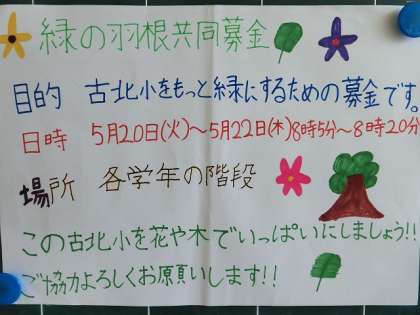 緑の羽根共同募金
目的 古北小をもっと緑にするための募金です。
日時 5月20日(火)~5月22日(木)8時5分~8時20分
場所 各学年の階段
この古北小を花や木でいっぱいにしましょう!!
ご協力よろしくお願いします!!